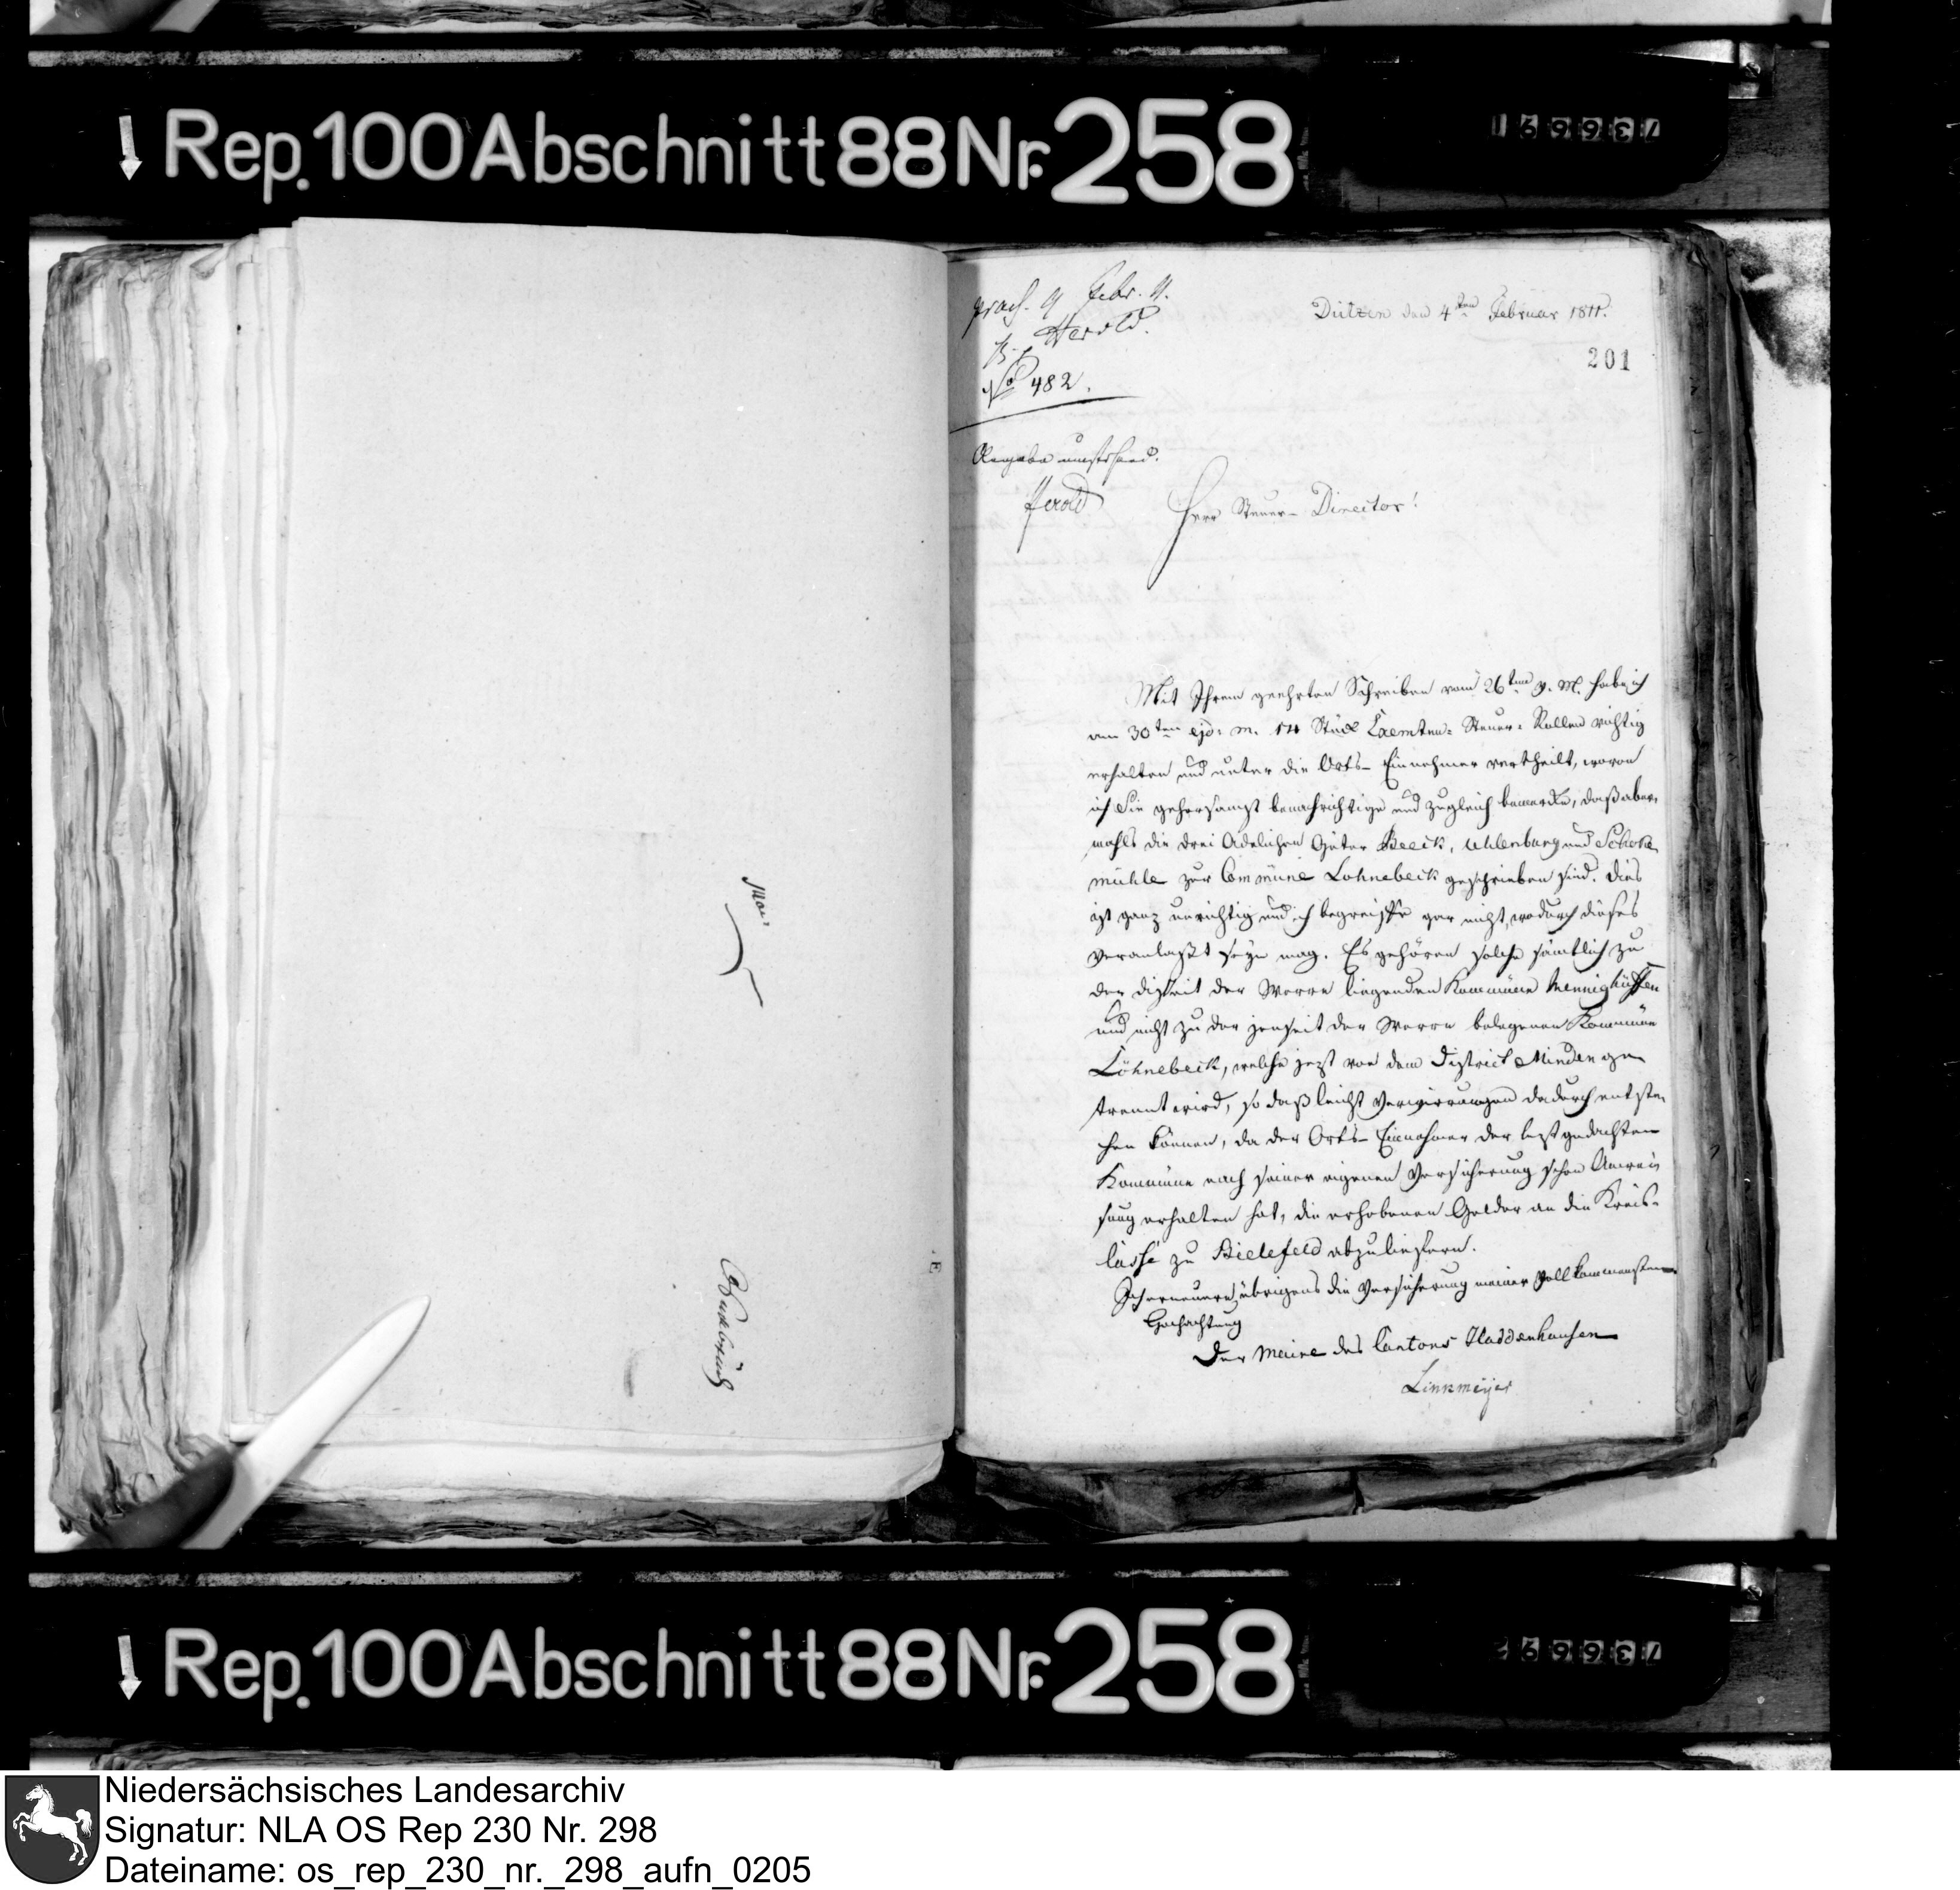 Rep. 100 Abschnitt 88 Nr. 258
736691
praes. 9 Febr. 11.
Herold.
No 482.
Dützen den 4ten Februar 1811.
201
Angabe umstehend.
Herold
Herr Steuer-Director!
Mit Ihrem geehrten Schreiben vom 26ten v. M. habe ich
am 30ten ejd: m. 14 Stück Exemten-Steuer-Rollen richtig
erhalten und unter die Orts-Einnehmer vertheilt, wovon
ich Sie gehorsamst benachrichtige und zugleich bemerke, daß aber-
mahls die drei Adelichen Güter Beeck, Uhlenburg und Schoke
mühle zur Commüne Löhnebeck geschrieben sind. Dies
ist ganz unrichtig und ich begreiffe gar nicht, wodurch dieses
veranlaßt seyn mag. Es gehören solche sämtlich zu
der disseit der Werre liegenden Kommüne Mennighüffen
und nicht zu der jenseit der Werre belegenen Kommüne
Löhnebeck, welche jezt von dem District Minden ge-
trennt wird, so daß leicht Verwirrungen dadurch entste-
hen können, da der Orts-Einnehmer der leztgedachten
Kommüne nach seiner eigenen Versicherung schon Anwei-
sung erhalten hat, die erhobenen Gelder an die Kreis-
casse zu Bielefeld abzuliefern.
Ich erneuere übrigens die Versicherung meiner vollkommensten
Hochachtung
Der Maire des Cantons Haddenhausen
Linnmeyer
Rep. 100 Abschnitt 88 Nr. 258
736692
Niedersächsisches Landesarchiv
Signatur: NLA OS Rep 230 Nr. 298
Dateiname: os_rep_230_nr._298_aufn_0205